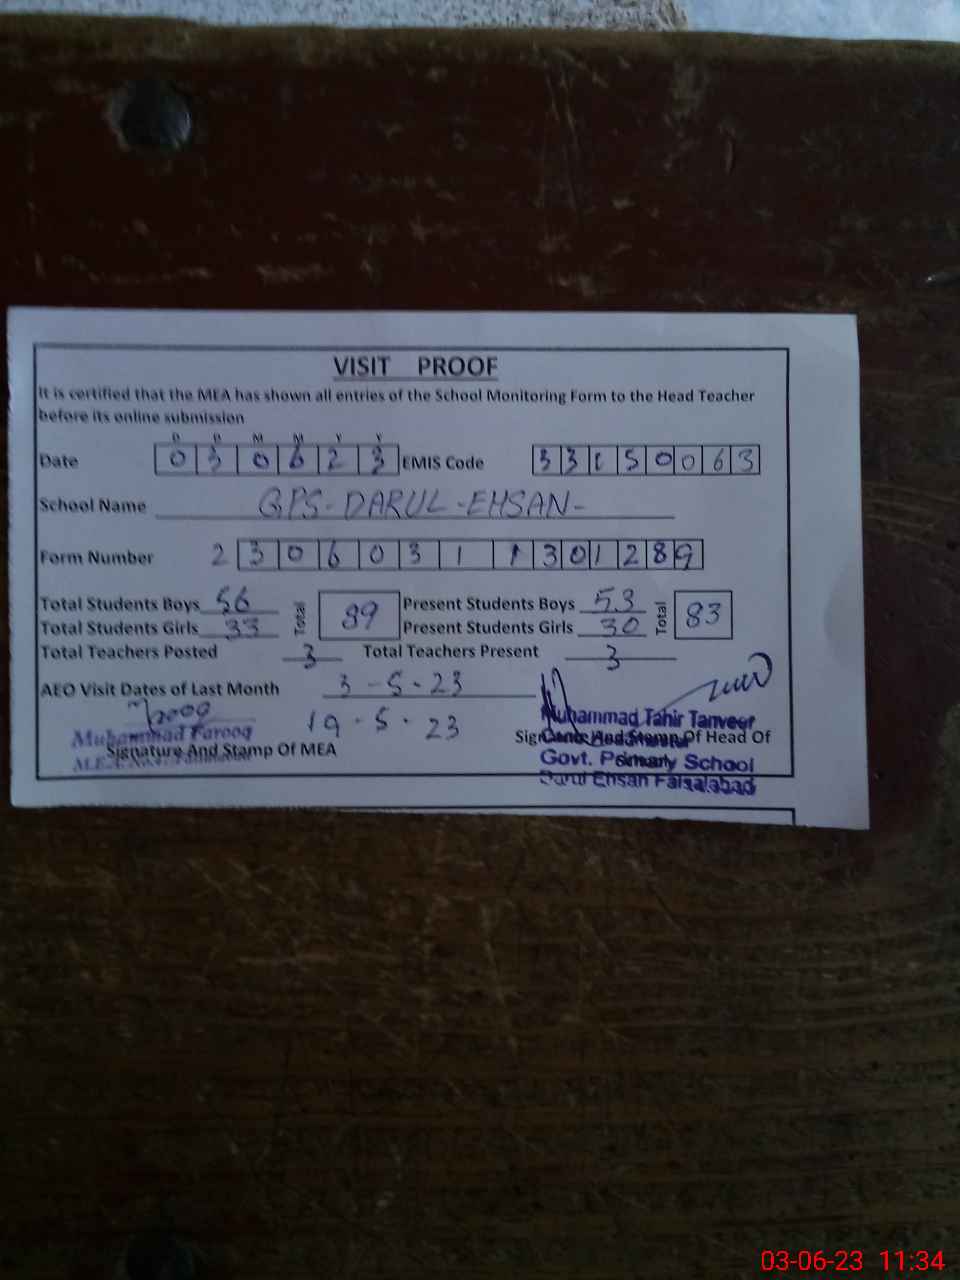 VISIT PROOF
It is certified that the MEA has shown all entries of the School Monitoring Form to the Head Teacher
before its online submission
D D M M Y Y
Date 030623 EMIS Code 33150063
School Name GPS-DARUL-EHSAN-
Form Number 2306031 1301289
Total Students Boys 56 Total 89 Present Students Boys 53 Total 83
Total Students Girls 33 Present Students Girls 30
Total Teachers Posted 3 Total Teachers Present 3
AEO Visit Dates of Last Month 3-5-23
19-5-23
Muhammad Farooq
Signature And Stamp Of MEA
Muhammad Tahir Tanveer
Signature And Stamp Of Head Of
Govt. Primary School
Darul Ehsan Faisalabad
03-06-23 11:34